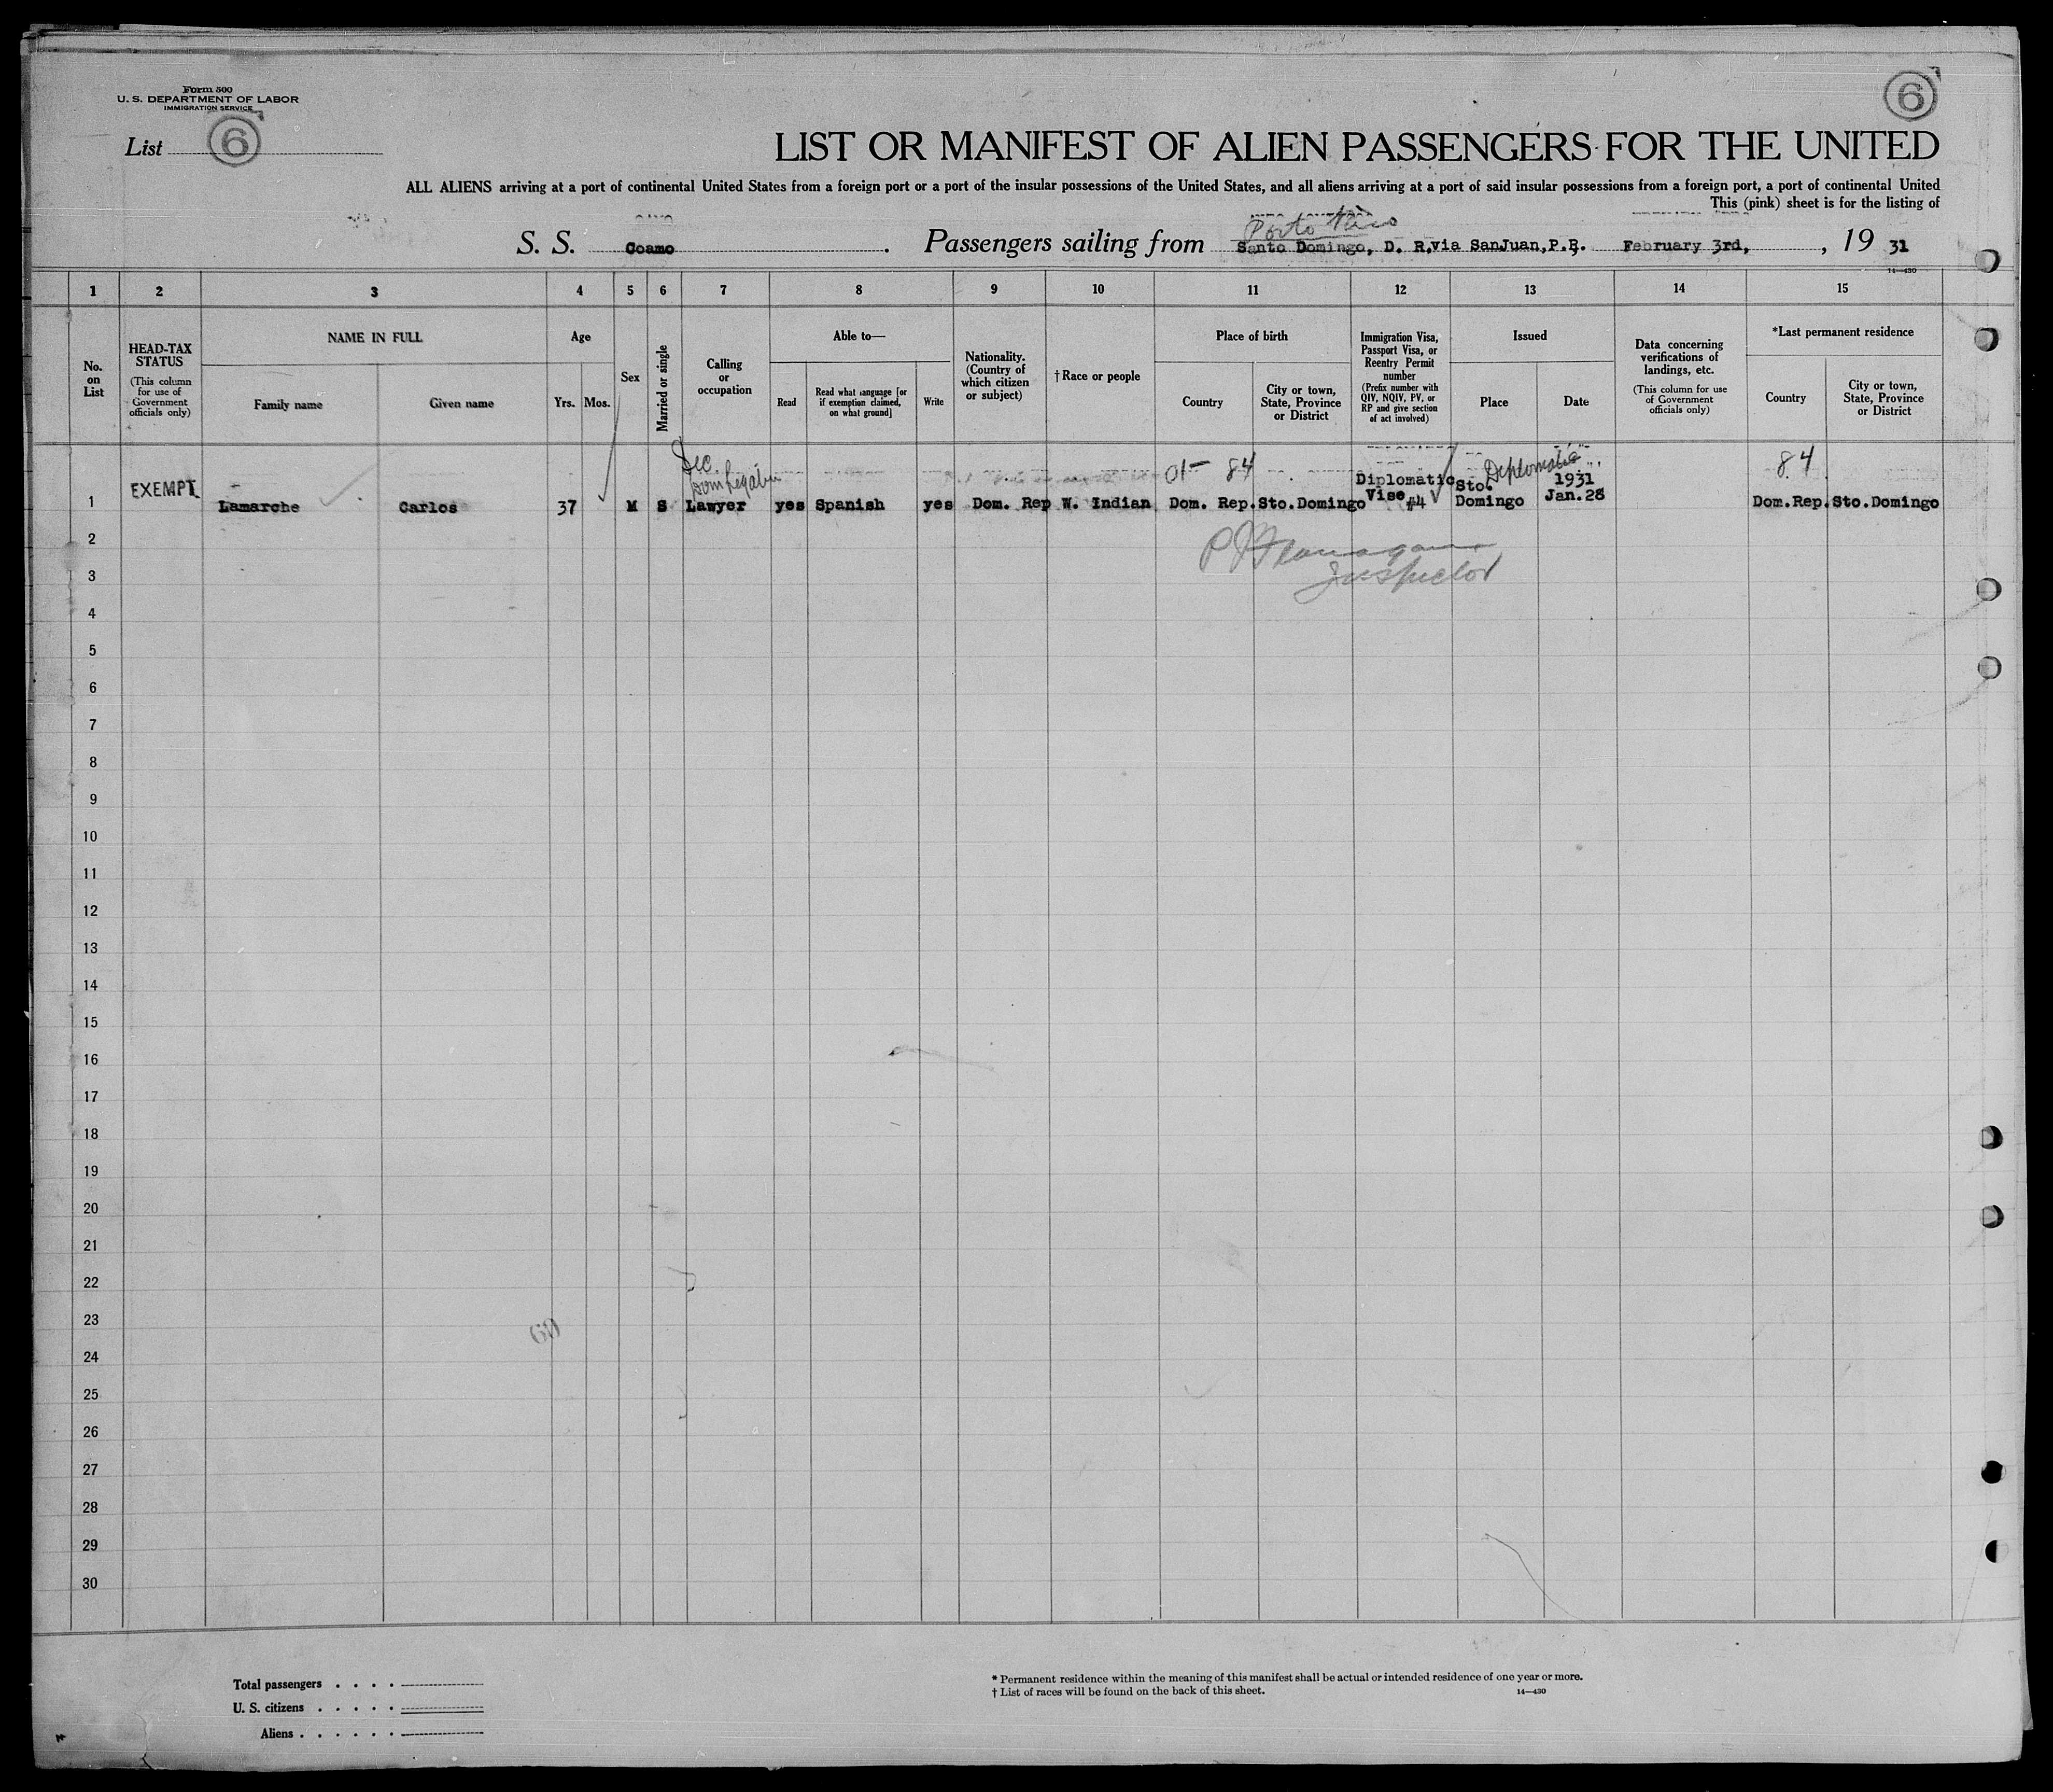 Form 500
U. S. DEPARTMENT OF LABOR
IMMIGRATION SERVICE
6
List 6
LIST OR MANIFEST OF ALIEN PASSENGERS FOR THE UNITED
ALL ALIENS arriving at a port of continental United States from a foreign port or a port of the insular possessions of the United States, and all aliens arriving at a port of said insular possessions from a foreign port, a port of continental United
This (pink) sheet is for the listing of
Porto Rico
S. S. Coamo. Passengers sailing from Santo Domingo, D. R. via SanJuan, P.R. February 3rd, , 19 31
14—430
1 2 3 4 5 6 7 8 9 10 11 12 13 14 15
No. on List
HEAD-TAX STATUS
(This column for use of Government officials only)
NAME IN FULL
Family name
Given name
Age
Yrs. Mos.
Sex
Married or single
Calling or occupation
Able to—
Read
Read what language [or if exemption claimed, on what ground]
Write
Nationality. (Country of which citizen or subject)
†Race or people
Place of birth
Country
City or town, State, Province or District
Immigration Visa, Passport Visa, or Reentry Permit number
(Prefix number with QIV, NQIV, PV, or RP and give section of act involved)
Issued
Place
Date
Data concerning verifications of landings, etc.
(This column for use of Government officials only)
*Last permanent residence
Country
City or town, State, Province or District
Sec. Dom Legation
01- 84
Diplomatic
84
1 EXEMPT Lamarche Carlos 37 M S Lawyer yes Spanish yes Dom. Rep W. Indian Dom. Rep. Sto. Domingo Diplomatic Vise #4 Sto. Domingo 1931 Jan. 28 Dom. Rep. Sto. Domingo
2
P J Flanagan
3
Inspector
4
5
6
7
8
9
10
11
12
13
14
15
16
17
18
19
20
21
22
23
24
25
26
27
28
29
30
Total passengers . . . .
U. S. citizens . . . . .
Aliens . . . . . .
* Permanent residence within the meaning of this manifest shall be actual or intended residence of one year or more.
† List of races will be found on the back of this sheet.
14—430